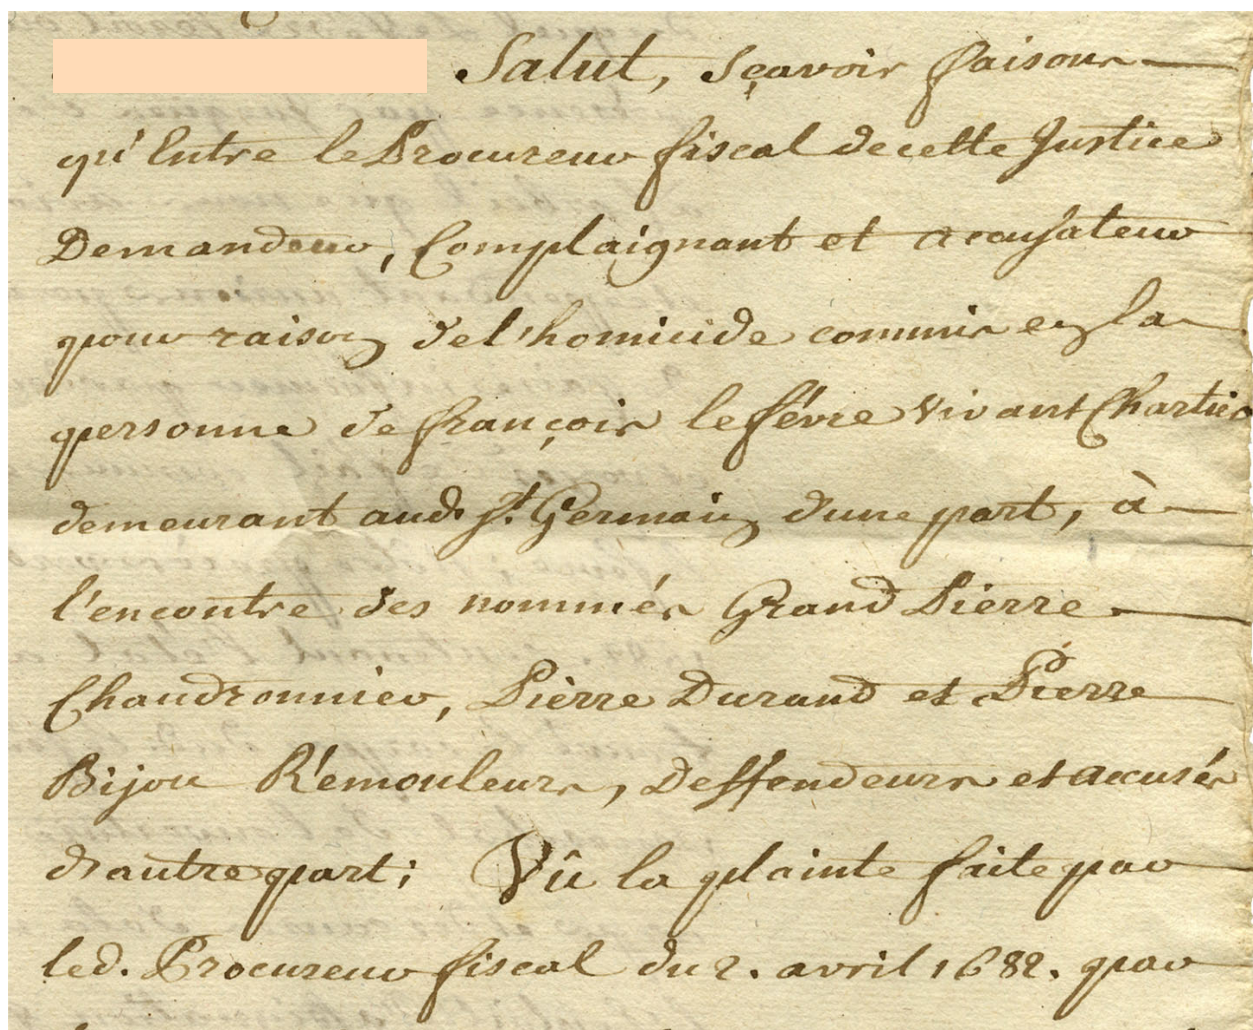 Salut, Sçavoir faisons
qu'Entre le Procureur fiscal de cette Justice
Demandeur, Complaignant et accusateur
pour raison de l'homicide commis en la
personne de françois le févre vivant Chartier
demeurant aud. St. Germain d'une part, à
l'encontre des nommés Grand Pierre
Chaudronnier, Pièrre Durand et Pierre
Bijou Rémouleurs, Deffendeurs et accusés
d'autre part; Vû la plainte faite par
led. Procureur fiscal du 2. avril 1682. par